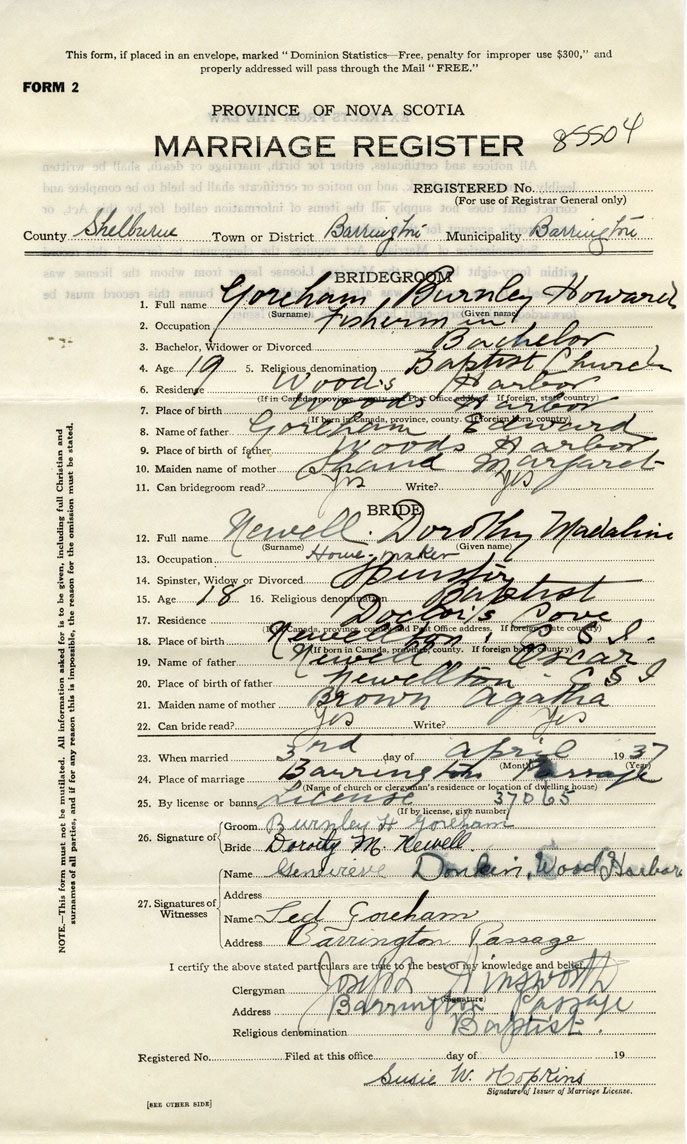 This form, if placed in an envelope, marked "Dominion Statistics—Free, penalty for improper use $300," and
properly addressed will pass through the Mail "FREE."
FORM 2
PROVINCE OF NOVA SCOTIA
MARRIAGE REGISTER 85504
REGISTERED No.
(For use of Registrar General only)
County Shelburne Town or District Barrington Municipality Barrington
BRIDEGROOM
1. Full name Goreham, Burnley Howard
(Surname) (Given name)
2. Occupation Fisherman
3. Bachelor, Widower or Divorced Bachelor
4. Age 19 5. Religious denomination Baptist Church
6. Residence Woods Harbor
(If in Canada, province, county and Post Office address. If foreign, state country)
7. Place of birth Woods Harbor
(If born in Canada, province, county. If foreign born, country)
8. Name of father Goreham Edward
9. Place of birth of father Woods Harbor
10. Maiden name of mother Margaret
11. Can bridegroom read? Yes Write? Yes
BRIDE
12. Full name Newell. Dorothy Madaline
(Surname) (Given name)
13. Occupation Home-maker
14. Spinster, Widow or Divorced Spinster
15. Age 18 16. Religious denomination Baptist
17. Residence Doctor's Cove
(If in Canada, province, county and Post Office address. If foreign state country)
18. Place of birth Newellton, C S I.
(If born in Canada, province, county. If foreign born country)
19. Name of father Newell Oscar
20. Place of birth of father Newellton - C S I
21. Maiden name of mother Brown Agatha
22. Can bride read? Yes Write? Yes
23. When married 3rd day of April 1937
(Month) (Year)
24. Place of marriage Barrington Passage
(Name of church or clergyman's residence or location of dwelling house)
25. By license or banns License 37065
(If by license, give number)
26. Signature of Groom Burnley H Goreham
Bride Dorothy M. Newell
27. Signatures of Witnesses
Name Genevieve Donkin, Wood Harbor
Address
Name Ted Goreham
Address Barrington Passage
I certify the above stated particulars are true to the best of my knowledge and belief.
Clergyman Joseph Ainsworth
(Signature)
Address Barrington Passage
Religious denomination Baptist.
Registered No. Filed at this office day of 19
Susie W. Hopkins
Signature of Issuer of Marriage License.
[SEE OTHER SIDE]
NOTE.—This form must not be mutilated. All information asked for is to be given, including full Christian and
surnames of all parties, and if for any reason this is impossible, the reason for the omission must be stated.